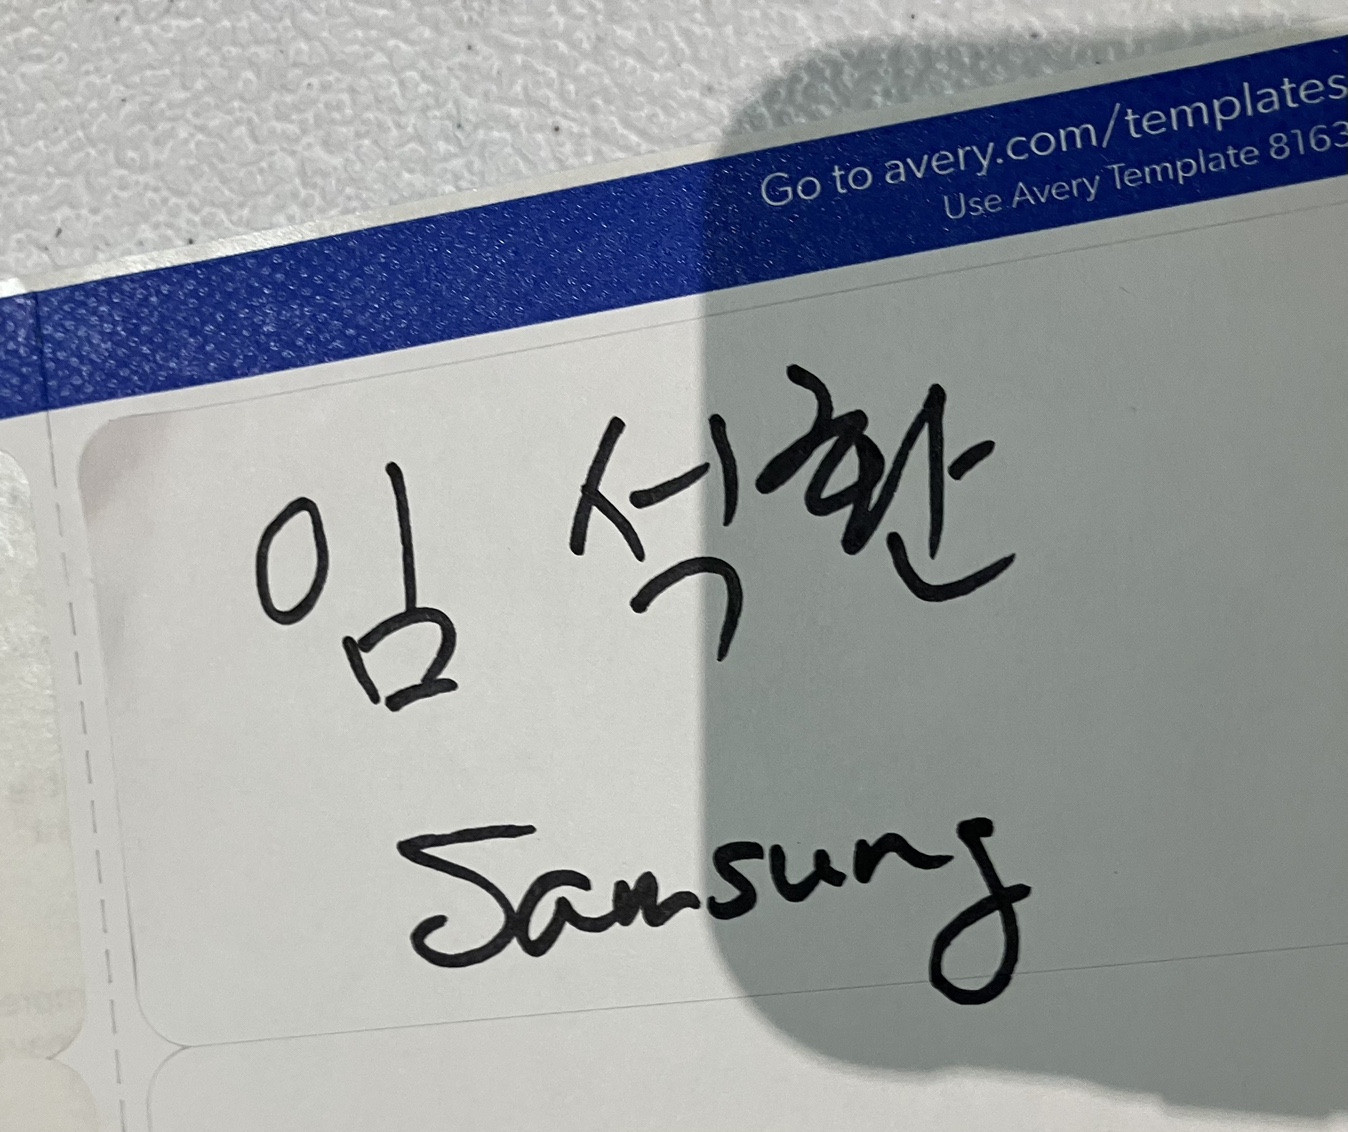 Go to avery.com/templates
Use Avery Template 8163
임 석환
Samsung